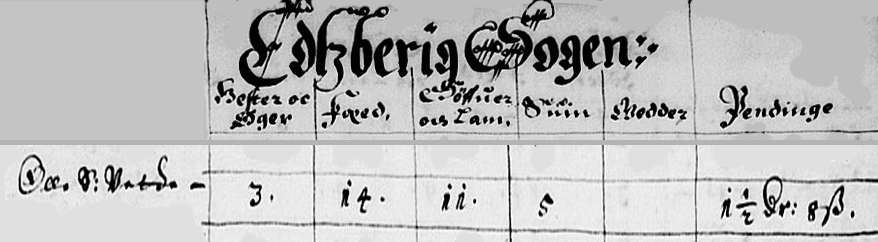 Colzberig Sogen:
Hester oc Øger Fæed. Söffuer och Lam. Suin Wedder Pendinge
S: 3. 14. 11. 5 1½ dr: 8 ß.